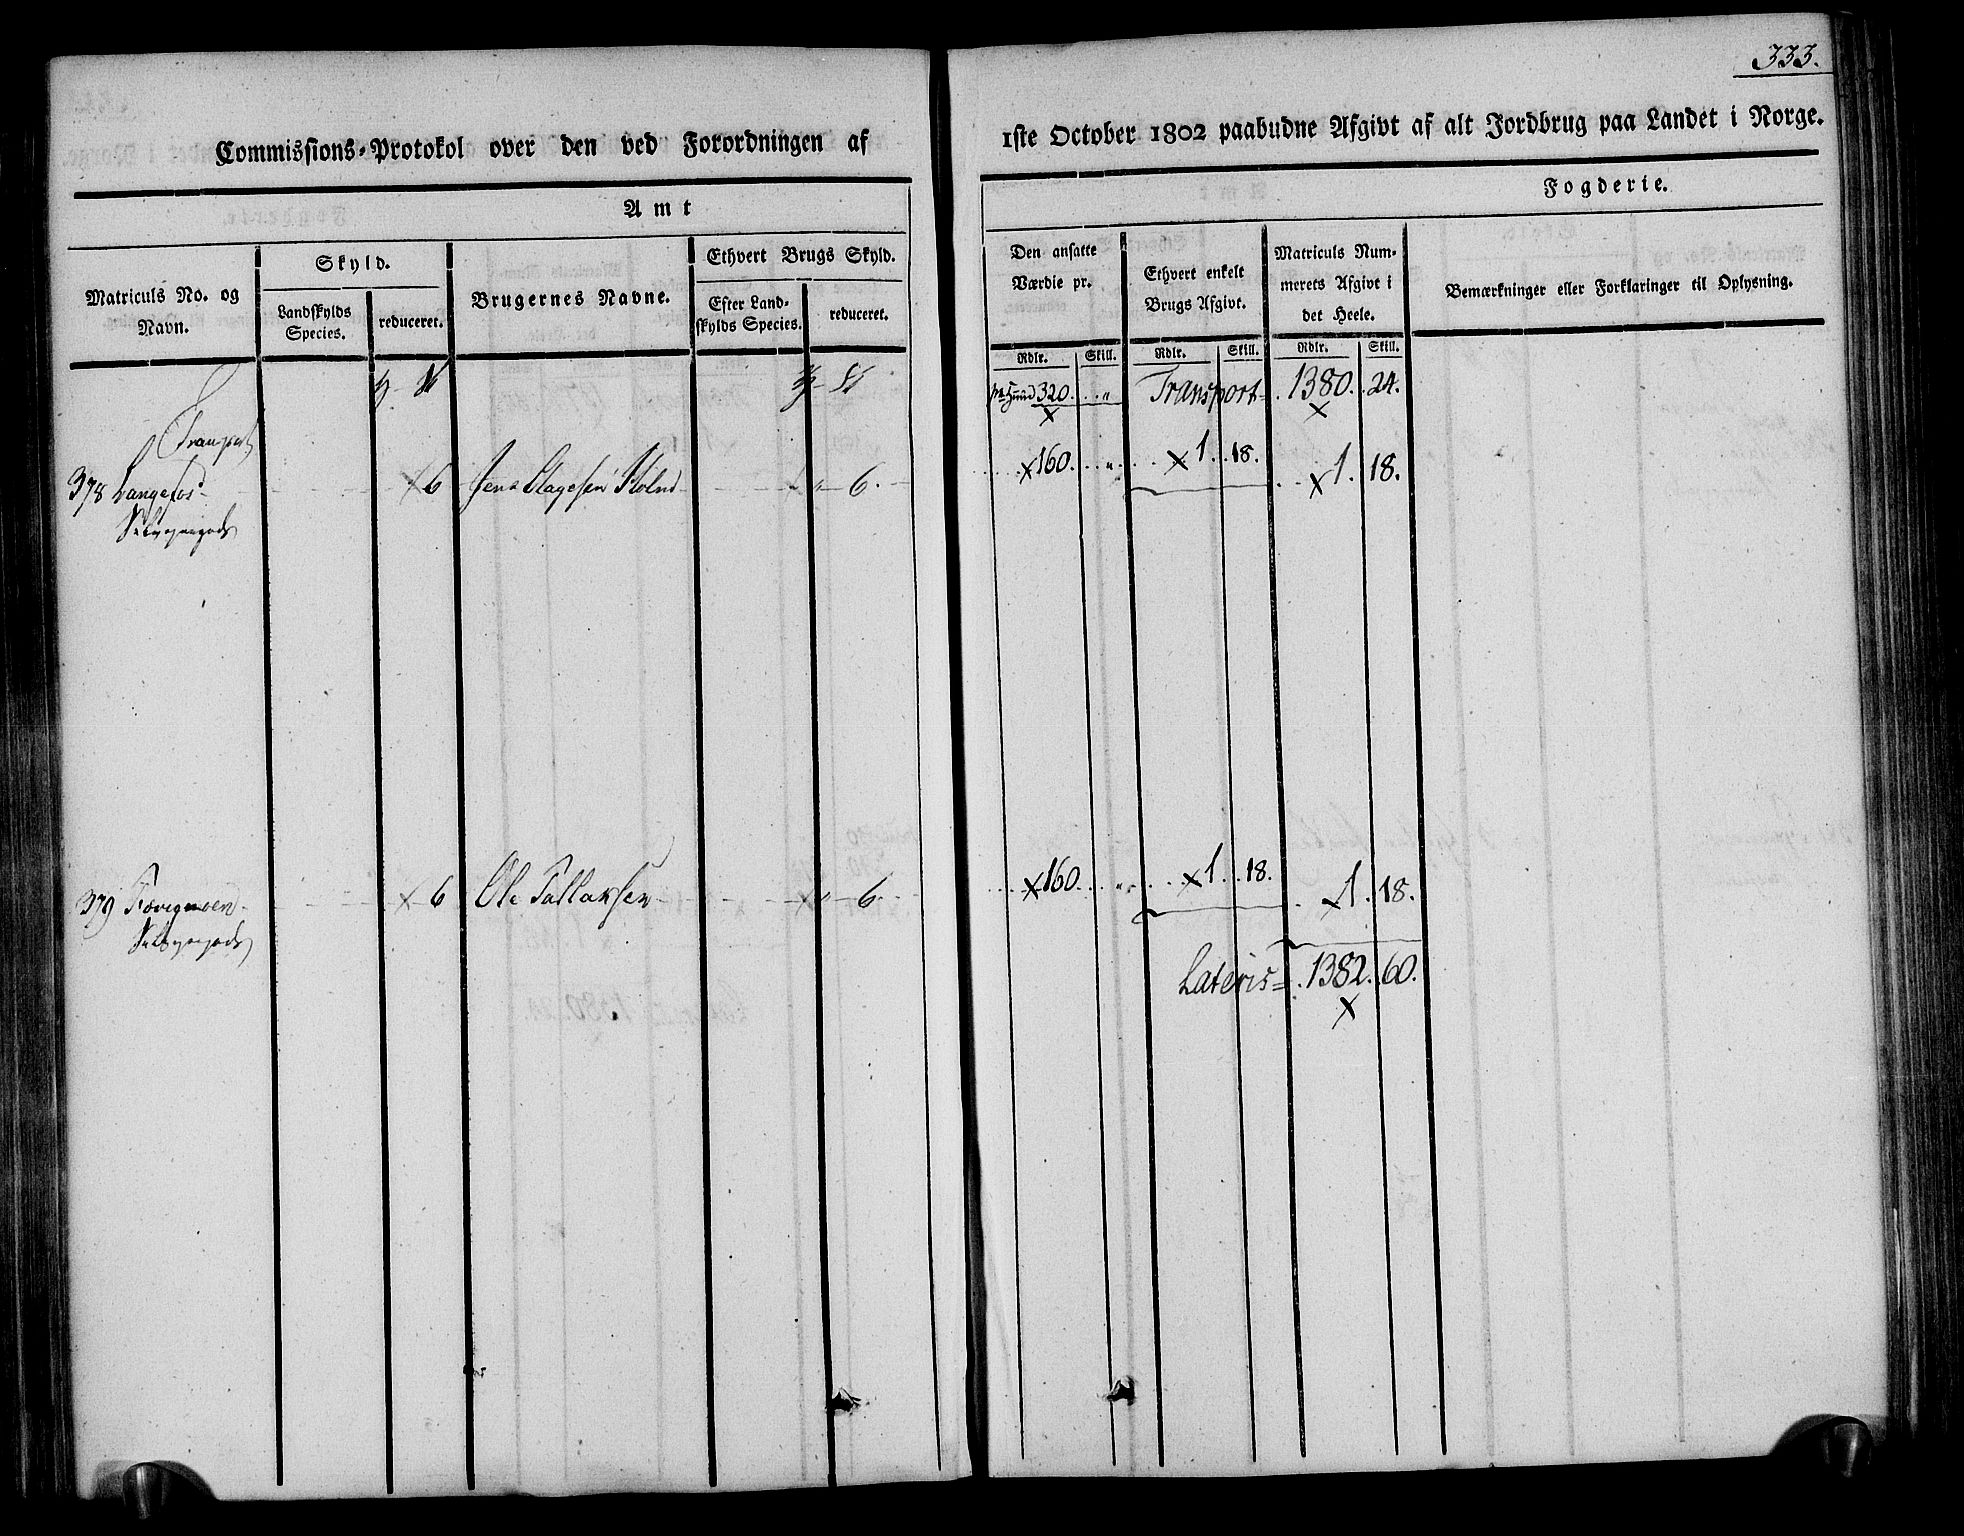 333.
Commissions-Protokol over den ved Forordningen af 1ste October 1802 paabudne Afgivt af alt Jordbrug paa Landet i Norge.
Amt
Fogderie.
Matriculs No. og Navn.
Skyld.
Landskylds Species.
reduceret.
Brugernes Navne.
Ethvert Brugs Skyld.
Efter Landskylds Species.
reduceret.
Den ansatte Værdie pr.
Ethvert enkelt Brugs Afgivt.
Matriculs Nummerets Afgivt i det Heele.
Bemærkninger eller Forklaringer til Oplysning.
Rdlr. Skill. Rdlr. Skill. Rdlr. Skill.
320. " Transport 1380. 24.
Transport
378 Langefos 6 Jens 6. 160. " 1. 18. 1. 18.
Selveyergods
379 6 Ole Tallaksen 6. 160. " 1. 18. 1. 18.
Selveyergods
Lateris 1382. 60.